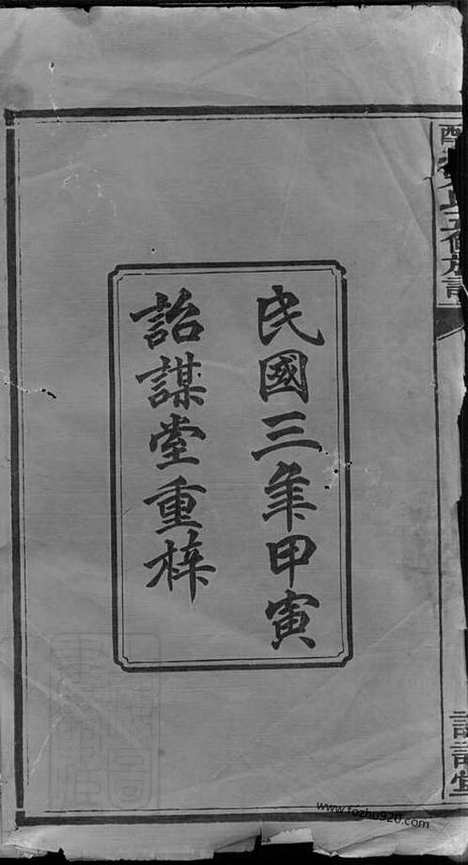 民國三年甲寅
詒謀堂重梓
五修族譜
www.fozhu920.com